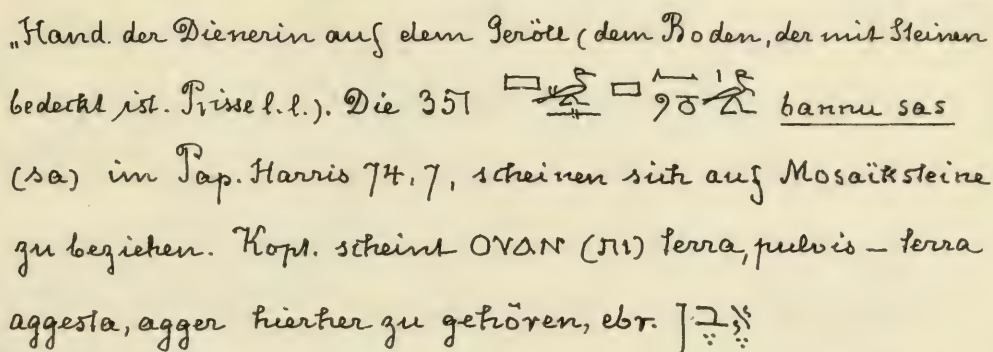 „Hand. der Dienerin auf dem Geröll (dem Boden, der mit Steinen
bedeckt ist. Prisse l.l.). Die 351 bannu sas
(sa) im Pap. Harris 74,7, scheinen sich auf Mosaïksteine
zu beziehen. Kopt. scheint ⲞⲨⲀⲚ (ⲡⲓ) terra, pulvis – terra
aggesta, agger hierher zu gehören, ebr. אֶבֶן